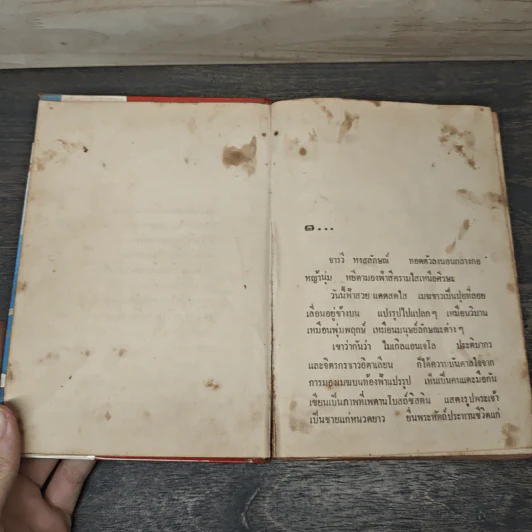 ๑...
จารวี หงสลักษณ์ ทอดตัวลงนอนกลางกอ
หญ้านุ่ม หยีตามองฟ้าสีครามใสเหนือศีรษะ
วันนี้ฟ้าสวย แดดสดใส เมฆขาวเป็นปุยที่ลอย
เลื่อนอยู่ข้างบน แปรรูปไปแปลก ๆ เหมือนวิมาน
เหมือนพุ่มพฤกษ์ เหมือนมนุษย์ลักษณะต่าง ๆ
เขาว่ากันว่า ไมเกิลแอนเจโล ประติมากร
และจิตรกรชาวอิตาเลียน ก็ได้ความบันดาลใจจาก
การมองเมฆบนท้องฟ้าแปรรูป เห็นเป็นคนแตะมือกัน
เขียนเป็นภาพที่เพดานโบสถ์ซิสติน แสดงรูปพระเจ้า
เป็นชายแก่หนวดยาว ยื่นพระหัตถ์ประทานชีวิตแก่